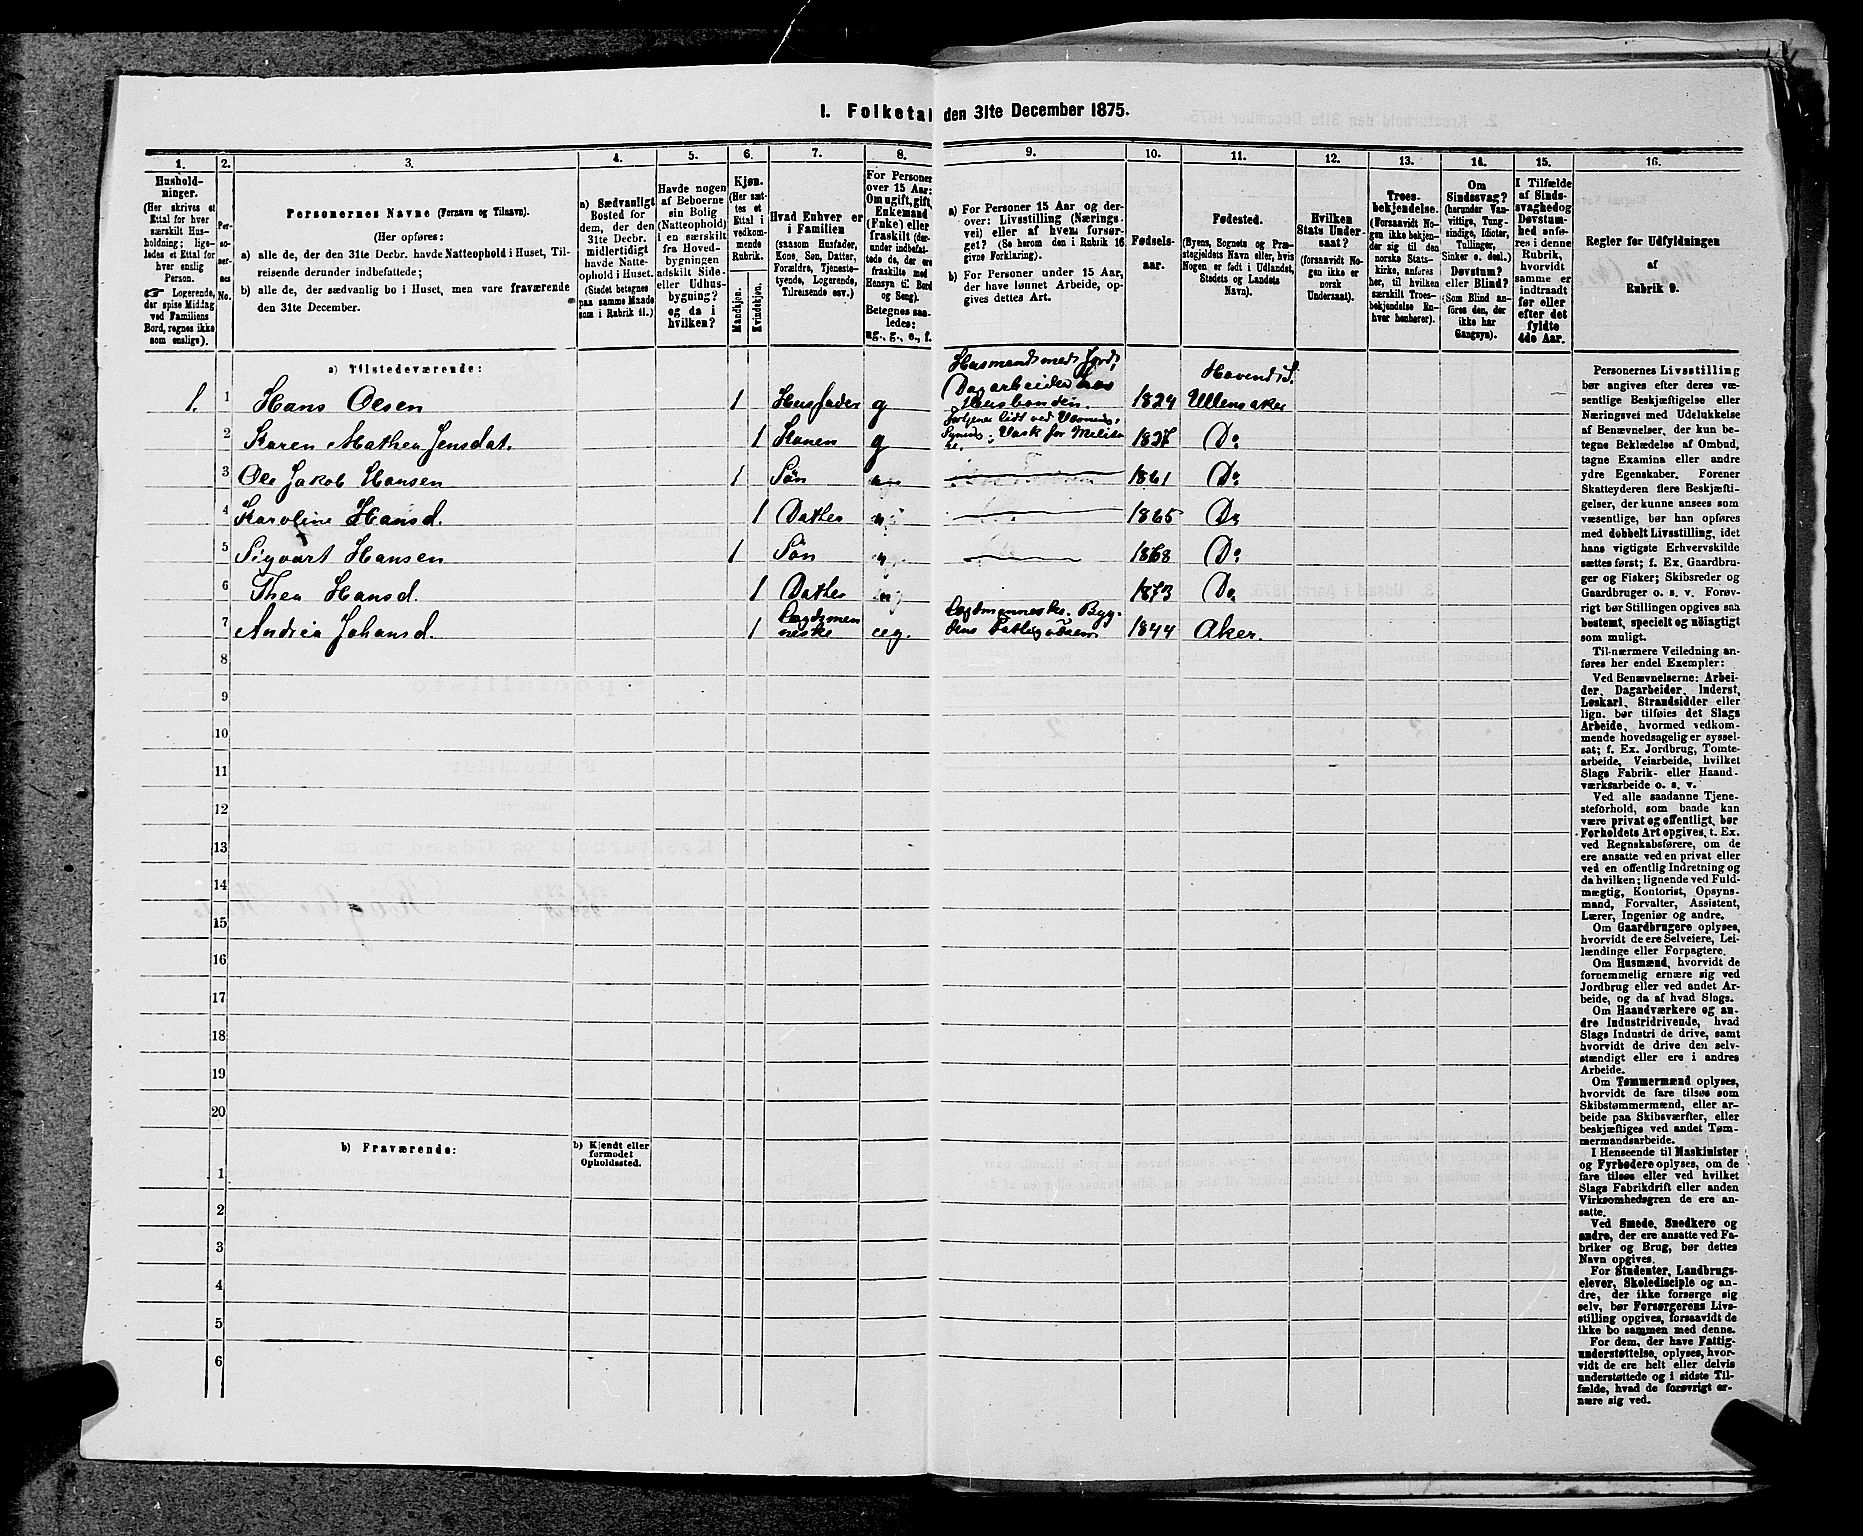 1. Folketal den 31te December 1875.
1. 2. 3. 4. 5. 6. 7. 8. 9. 10. 11. 12. 13. 14. 15. 16.
Hushold-
ninger.
(Her skrives et
Ettal for hver
særskilt Hus-
holdning; lige-
ledes et Ettal for
hver enslig
Person.
☞ Logerende,
der spise Middag
ved Familiens
Bord, regnes ikke
som enslige).
Per-
so-
ner-
nes
No.
Personernes Navne (Fornavn og Tilnavn).
(Her opføres:
a) alle de, der den 31te Decbr. havde Natteophold i Huset, Til-
reisende derunder indbefattede;
b) alle de, der sædvanlig bo i Huset, men vare fraværende
den 31te December.
a) Sædvanligt
Bosted for
dem, der den
31te Decbr.
midlertidigt
havde Natte-
ophold i Huset.
(Stedet betegnes
paa samme Maade
som i Rubrik 11.)
Havde nogen
af Beboerne
sin Bolig
(Natteophold)
i en særskilt
fra Hoved-
bygningen
adskilt Side-
eller Udhus-
bygning?
og da i
hvilken?
Kjøn.
(Her sæt-
tes et
Ettal i
vedkom-
mende
Rubrik.
Mandkjøn.
Kvindekjøn.
Hvad Enhver er
i Familien
(saasom Husfader,
Kone, Søn, Datter,
Forældre, Tjeneste-
tyende, Logerende,
Tilreisende osv.)
For Personer
over 15 Aar:
Om ugift, gift,
Enkemand
(Enke) eller
fraskilt (der-
under indbefat-
tede de, der ere
fraskilte med
Hensyn til Bord
og Seng).
Betegnes saa-
ledes:
ug., g., e., f.
a) For Personer 15 Aar og der-
over: Livsstilling (Nærings-
vei) eller af hvem forsør-
get? (Se herom den i Rubrik 16
givne Forklaring).
b) For Personer under 15 Aar,
der have lønnet Arbeide, op-
gives dettes Art.
Fødsels-
aar.
Fødested.
(Byens, Sognets og Præ-
stegjeldets Navn eller, hvis
Nogen er født i Udlandet,
Stedets og Landets
Navn).
Hvilken
Stats Under-
saat?
(forsaavidt No-
gen ikke er
norsk
Undersaat).
Troes-
bekjendelse.
(Forsaavidt No-
gen ikke bekjen-
der sig til den
norske Stats-
kirke, anføres
her, til hvilken
særskilt Troes-
bekjendelse En-
hver henhører).
Om
Sindssvag?
(herunder Van-
vittige, Tung-
sindige, Idioter,
Tullinger,
Sinker o. desl.)
Døvstum?
eller Blind?
(Som Blind an-
føres den, der
ikke har
Gangsyn).
I Tilfælde
af Sinds-
svaghed og
Døvstum-
hed anfø-
res i denne
Rubrik,
hvorvidt
samme er
indtraadt
før eller
efter det
fyldte
4de Aar.
Regler for Udfyldningen
af
Rubrik 9.
a) Tilstedeværende:
1. 1 Hans Olsen 1 Husfader g Husmand med Jord, Dagarbeider hos Husbonden. 1824 Ullensaker
2 Karen Mathea Jensdat. 1 Konen g 1827 Do
3 Ole Jakob Hansen 1 Søn 1861 Do
4 Karoline Hansd. 1 Datter 1865 Do
5 Sigvart Hansen 1 Søn 1868 Do
6 Thea Hansd. 1 Datter 1873 Do
7 Andrea Johansd. 1 Lægdsmenneske ug. 1844 Aker.
8
9
10
11
12
13
14
15
16
17
18
19
20
b) Fraværende:
b) Kjendt eller
formodet
Opholdssted.
1
2
3
4
5
6
Personernes Livsstilling
bør angives efter deres væ-
sentlige Beskjæftigelse eller
Næringsvei med Udelukkelse
af Benævnelser, der kun be-
tegne Beklædelse af Ombud,
tagne Examina eller andre
ydre Egenskaber. Forener
Skatteyderen flere Beskjæfti-
gelser, der kunne ansees som
væsentlige, bør han opføres
med dobbelt Livsstilling, idet
hans vigtigste Erhvervskilde
sættes først; f. Ex. Gaardbru-
ger og Fisker; Skibsreder og
Gaardbruger o. s. v. Forøv-
rigt bør Stillingen opgives saa
bestemt, specielt og nöiagtigt
som muligt.
Til nærmere Veiledning an-
føres her endel Exempler:
Ved Benævnelserne: Arbei-
der, Dagarbeider, Inderst,
Løskarl, Strandsidder eller
lign. bør tilføies det Slags
Arbeide, hvormed vedkom-
mende hovedsagelig er syssel-
sat; f. Ex. Jordbrug, Tomte-
arbeide, Veiarbeide, hvilket
Slags Fabrik- eller Haand-
værksarbeide o. s. v.
Ved alle saadanne Tjene-
steforhold, som baade kan
være privat og offentligt, bør
Forholdets Art opgives, t. Ex.
ved Regnskabsførere, om de
ere ansatte ved en privat eller
ved en offentlig Indretning og
da hvilken; lignende ved Fuld-
mægtig, Kontorist, Opsyns-
mand, Forvalter, Assistent,
Lærer, Ingeniør og andre.
Om Gaardbrugere oplyses,
hvorvidt de ere Selveiere, Lei-
lændinge eller Forpagtere.
Om Husmænd, hvorvidt de
fornemmelig ernære sig ved
Jordbrug eller ved andet Ar-
beide, og da af hvad Slags.
Om Haandværkere og an-
dre Industridrivende, hvad
Slags Industri de drive, samt
hvorvidt de drive den selv-
stændigt eller ere i andres
Arbeide.
Om Tømmermænd oplyses,
hvorvidt de fare tilsøs som
Skibstømmermænd, eller ar-
beide paa Skibsværfter, eller
beskjæftiges ved andet Tøm-
mermandsarbeide.
I Henseende til Maskinister
og Fyrbødere oplyses, om de
fare tilsøs eller ved hvilket
Slags Fabrikdrift eller anden
Virksomhedsgren de ere an-
satte.
Ved Smede, Snedkere og
andre, der ere ansatte ved Fa-
briker og Brug, bør dettes
Navn opgives.
For Studenter, Landbrugs-
elever, Skoledisciple og an-
dre, der ikke forsørge sig
selv, bør Forsørgerens Livs-
stilling opgives, forsaavidt de
ikke bo sammen med denne.
For dem, der have Fattig-
understøttelse, oplyses, hvor-
vidt de ere helt eller delvis
understøttede og i sidste Til-
fælde, hvad de forøvrigt er-
nære sig ved.